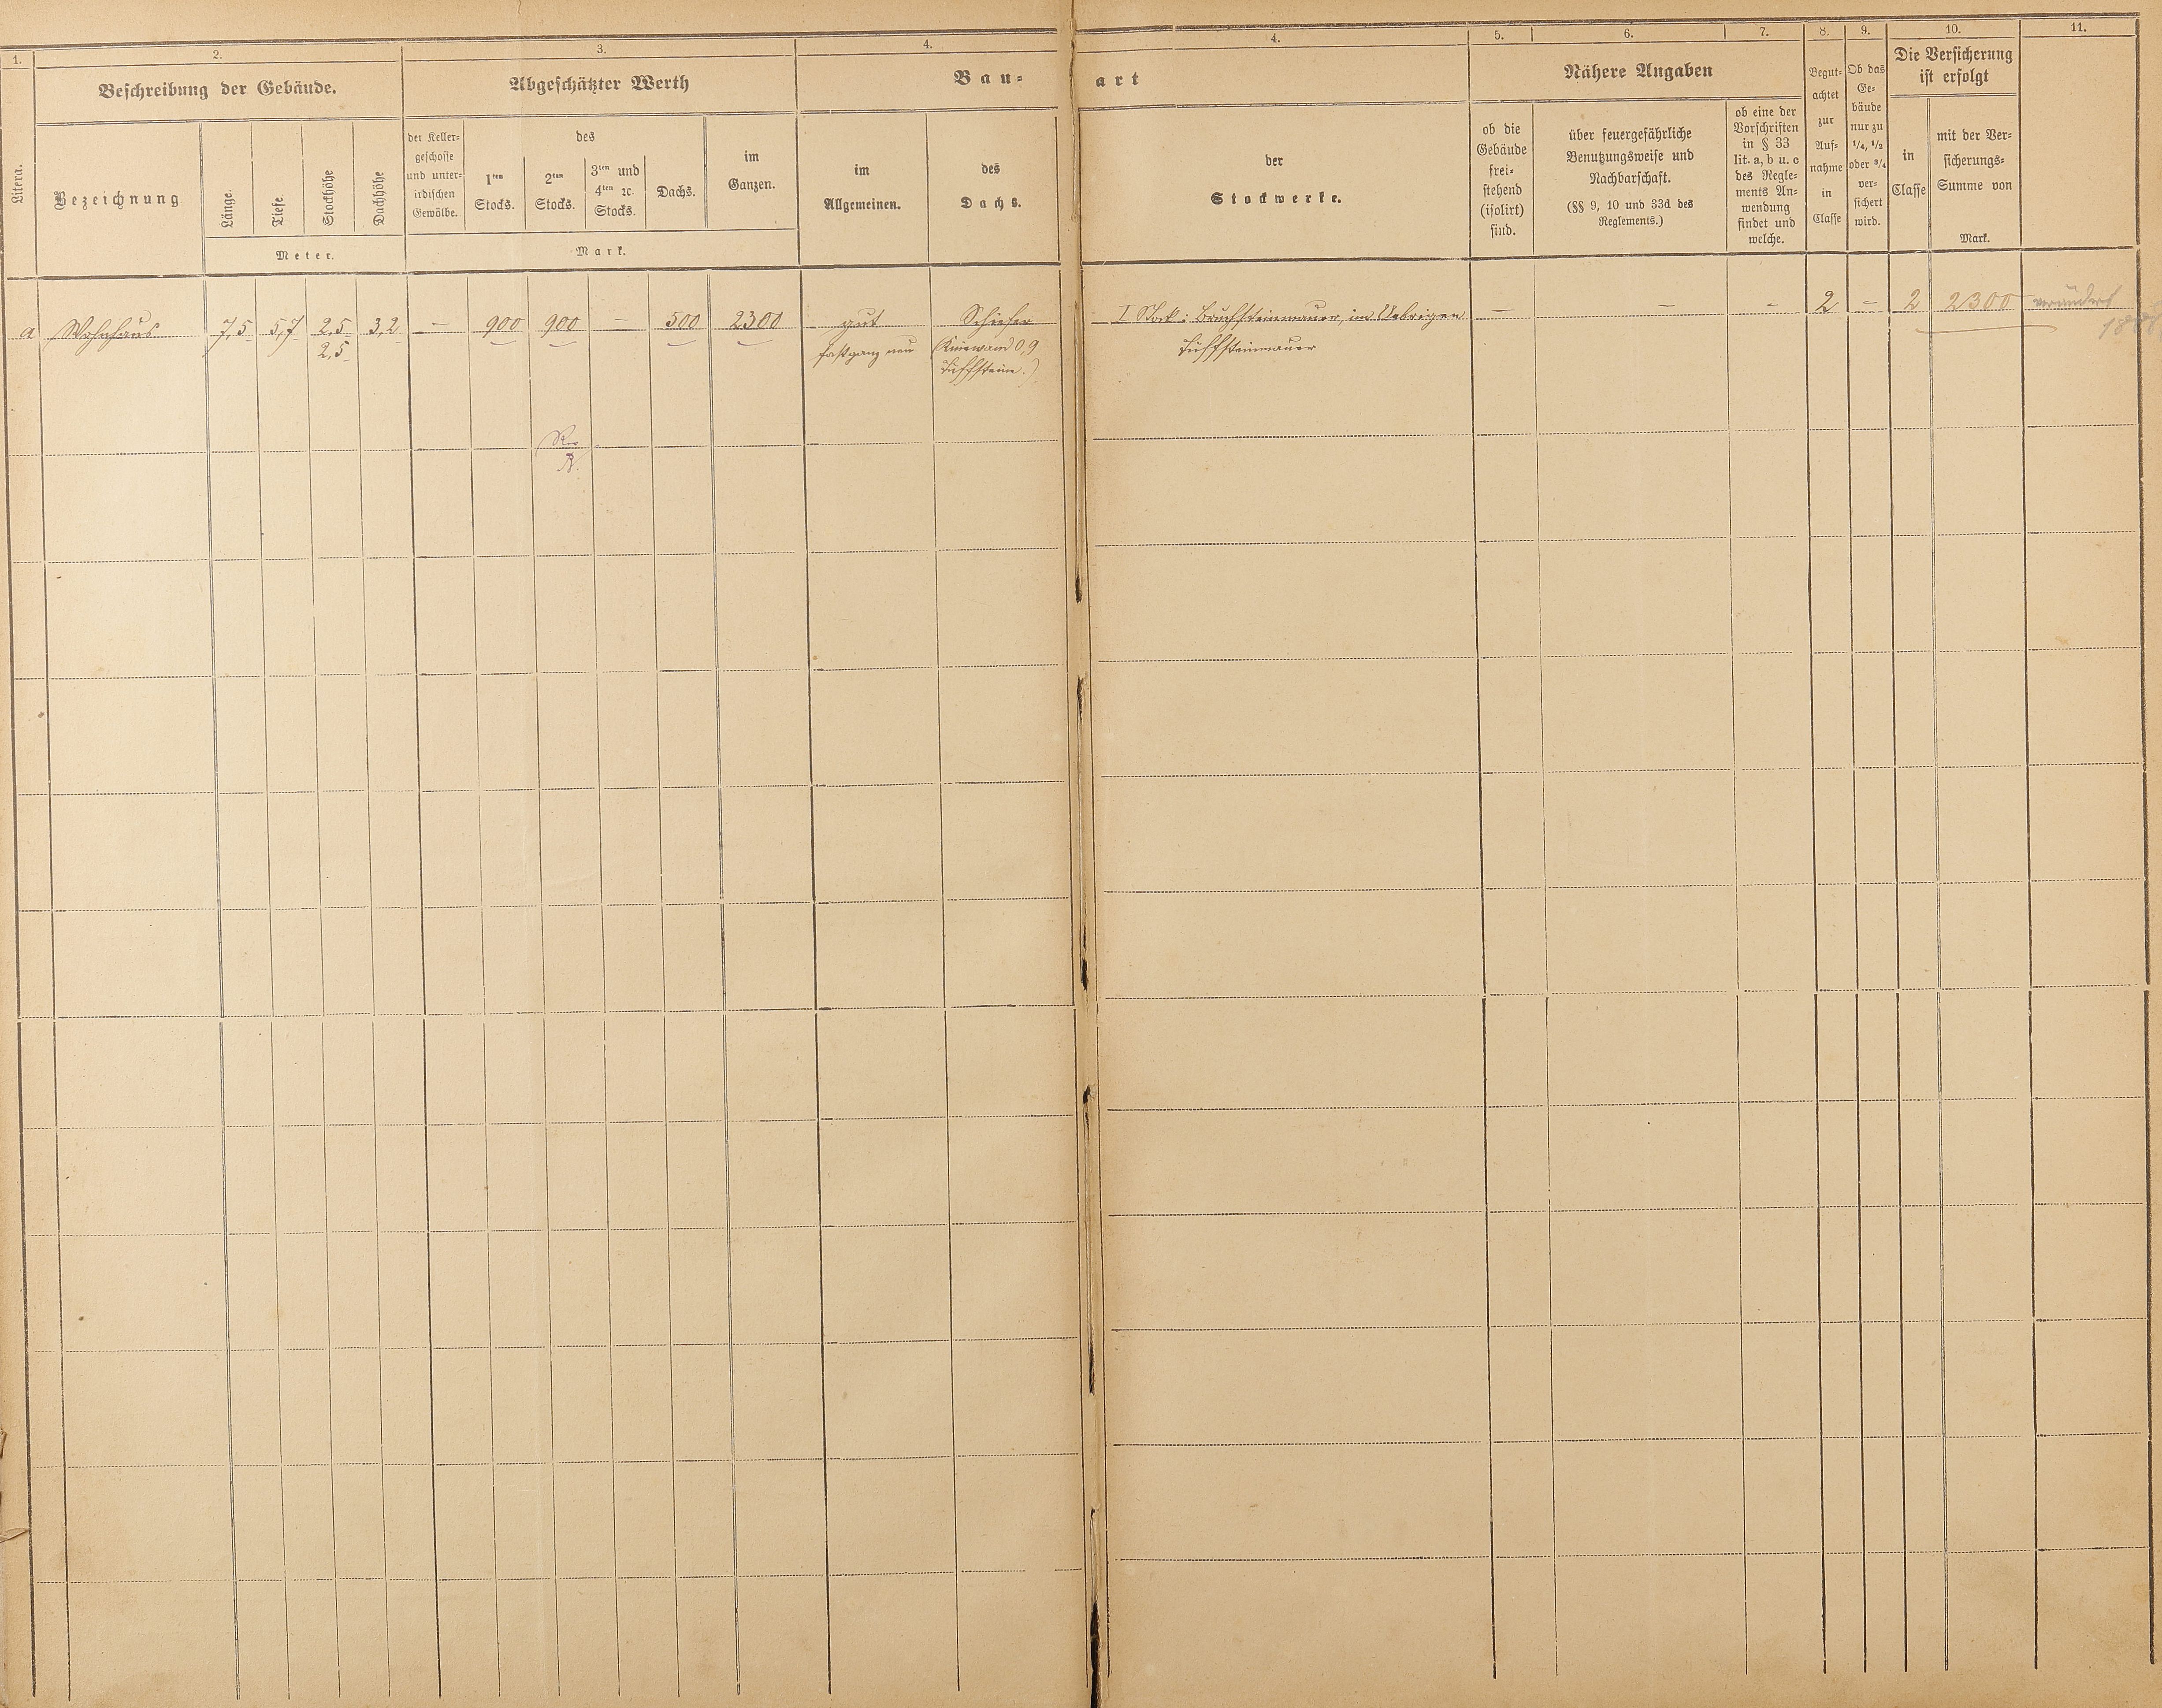 1.
2.
3.
4.
4.
5.
6.
7.
8.
9.
10.
11.
Litera.
Beschreibung der Gebäude.
Bezeichnung
Länge.
Tiefe
Stockhöhe
Dachhöhe
Meter.
Abgeschätzter Werth
der Keller-
geschosse
und unter-
irdischen
Gewölbe.
des
1ten
Stocks.
2ten
Stocks.
3ten und
4ten ꝛc.
Stocks.
Dachs.
im
Ganzen.
Mark.
Bau-
art
im
Allgemeinen.
des
Dachs.
der
Stockwerke.
Nähere Angaben
ob die
Gebäude
frei-
stehend
(isolirt)
sind.
über feuergefährliche
Benutzungsweise und
Nachbarschaft.
(§§ 9, 10 und 33d des
Reglements.)
ob eine der
Vorschriften
in § 33
lit. a, b u. c
des Regle-
ments An-
wendung
findet und
welche.
Begut-
achtet
zur
Auf-
nahme
in
Classe
Ob das
Ge-
bäude
nur zu
1/4, 1/2
oder 3/4
ver-
sichert
wird.
Die Versicherung
ist erfolgt
in
Classe
mit der Ver-
sicherungs-
Summe von
Mark.
a Wohnhaus 7,5 5,7 2,5 3,2 — 900 900 — 500 2300 gut Schiefer I Stock: Bruchsteinmauer, im Uebrigen — — — 2 — 2 2300 verändert
2,5 fast ganz neu (Kniewand 0,9 Tuffsteinmauer
Tuffsteine.)